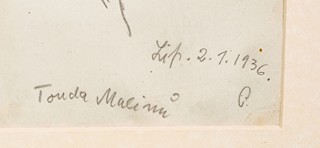 Lip. 2.1.1936.
Tonda Malinů P.